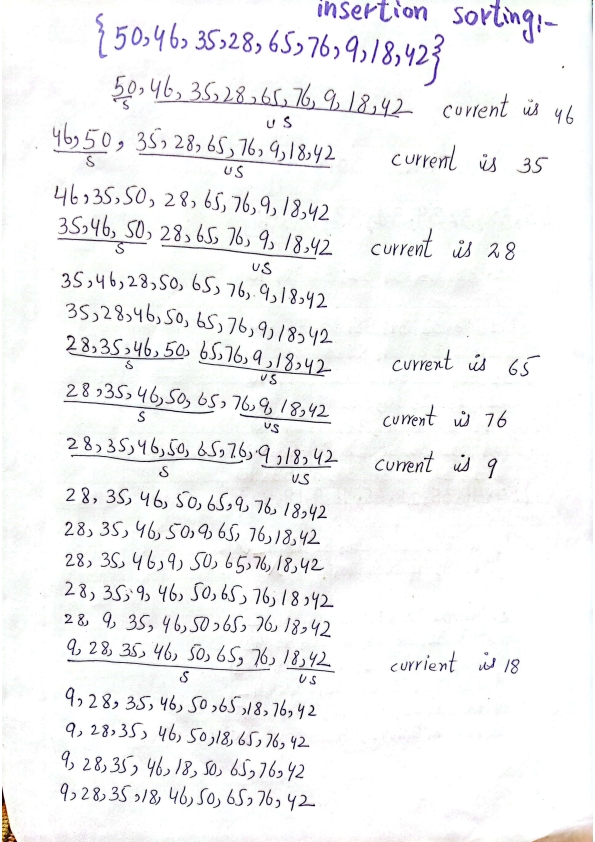 insertion sorting:-
{50,46,35,28,65,76,9,18,42}
50,46,35,28,65,76,9,18,42 current is 46
S US
46,50, 35,28,65,76,9,18,42 current is 35
S US
46,35,50, 28,65,76,9,18,42
35,46,50, 28,65,76,9,18,42 current is 28
S US
35,46,28,50,65,76,9,18,42
35,28,46,50,65,76,9,18,42
28,35,46,50, 65,76,9,18,42 current is 65
S US
28,35,46,50,65, 76,9,18,42 current is 76
S US
28,35,46,50,65,76,9,18,42 current is 9
S US
28,35,46,50,65,9,76,18,42
28,35,46,50,9,65,76,18,42
28,35,46,9,50,65,76,18,42
28,35,9,46,50,65,76,18,42
28,9,35,46,50,65,76,18,42
9,28,35,46,50,65,76,18,42 currient is 18
S US
9,28,35,46,50,65,18,76,42
9,28,35,46,50,18,65,76,42
9,28,35,46,18,50,65,76,42
9,28,35,18,46,50,65,76,42